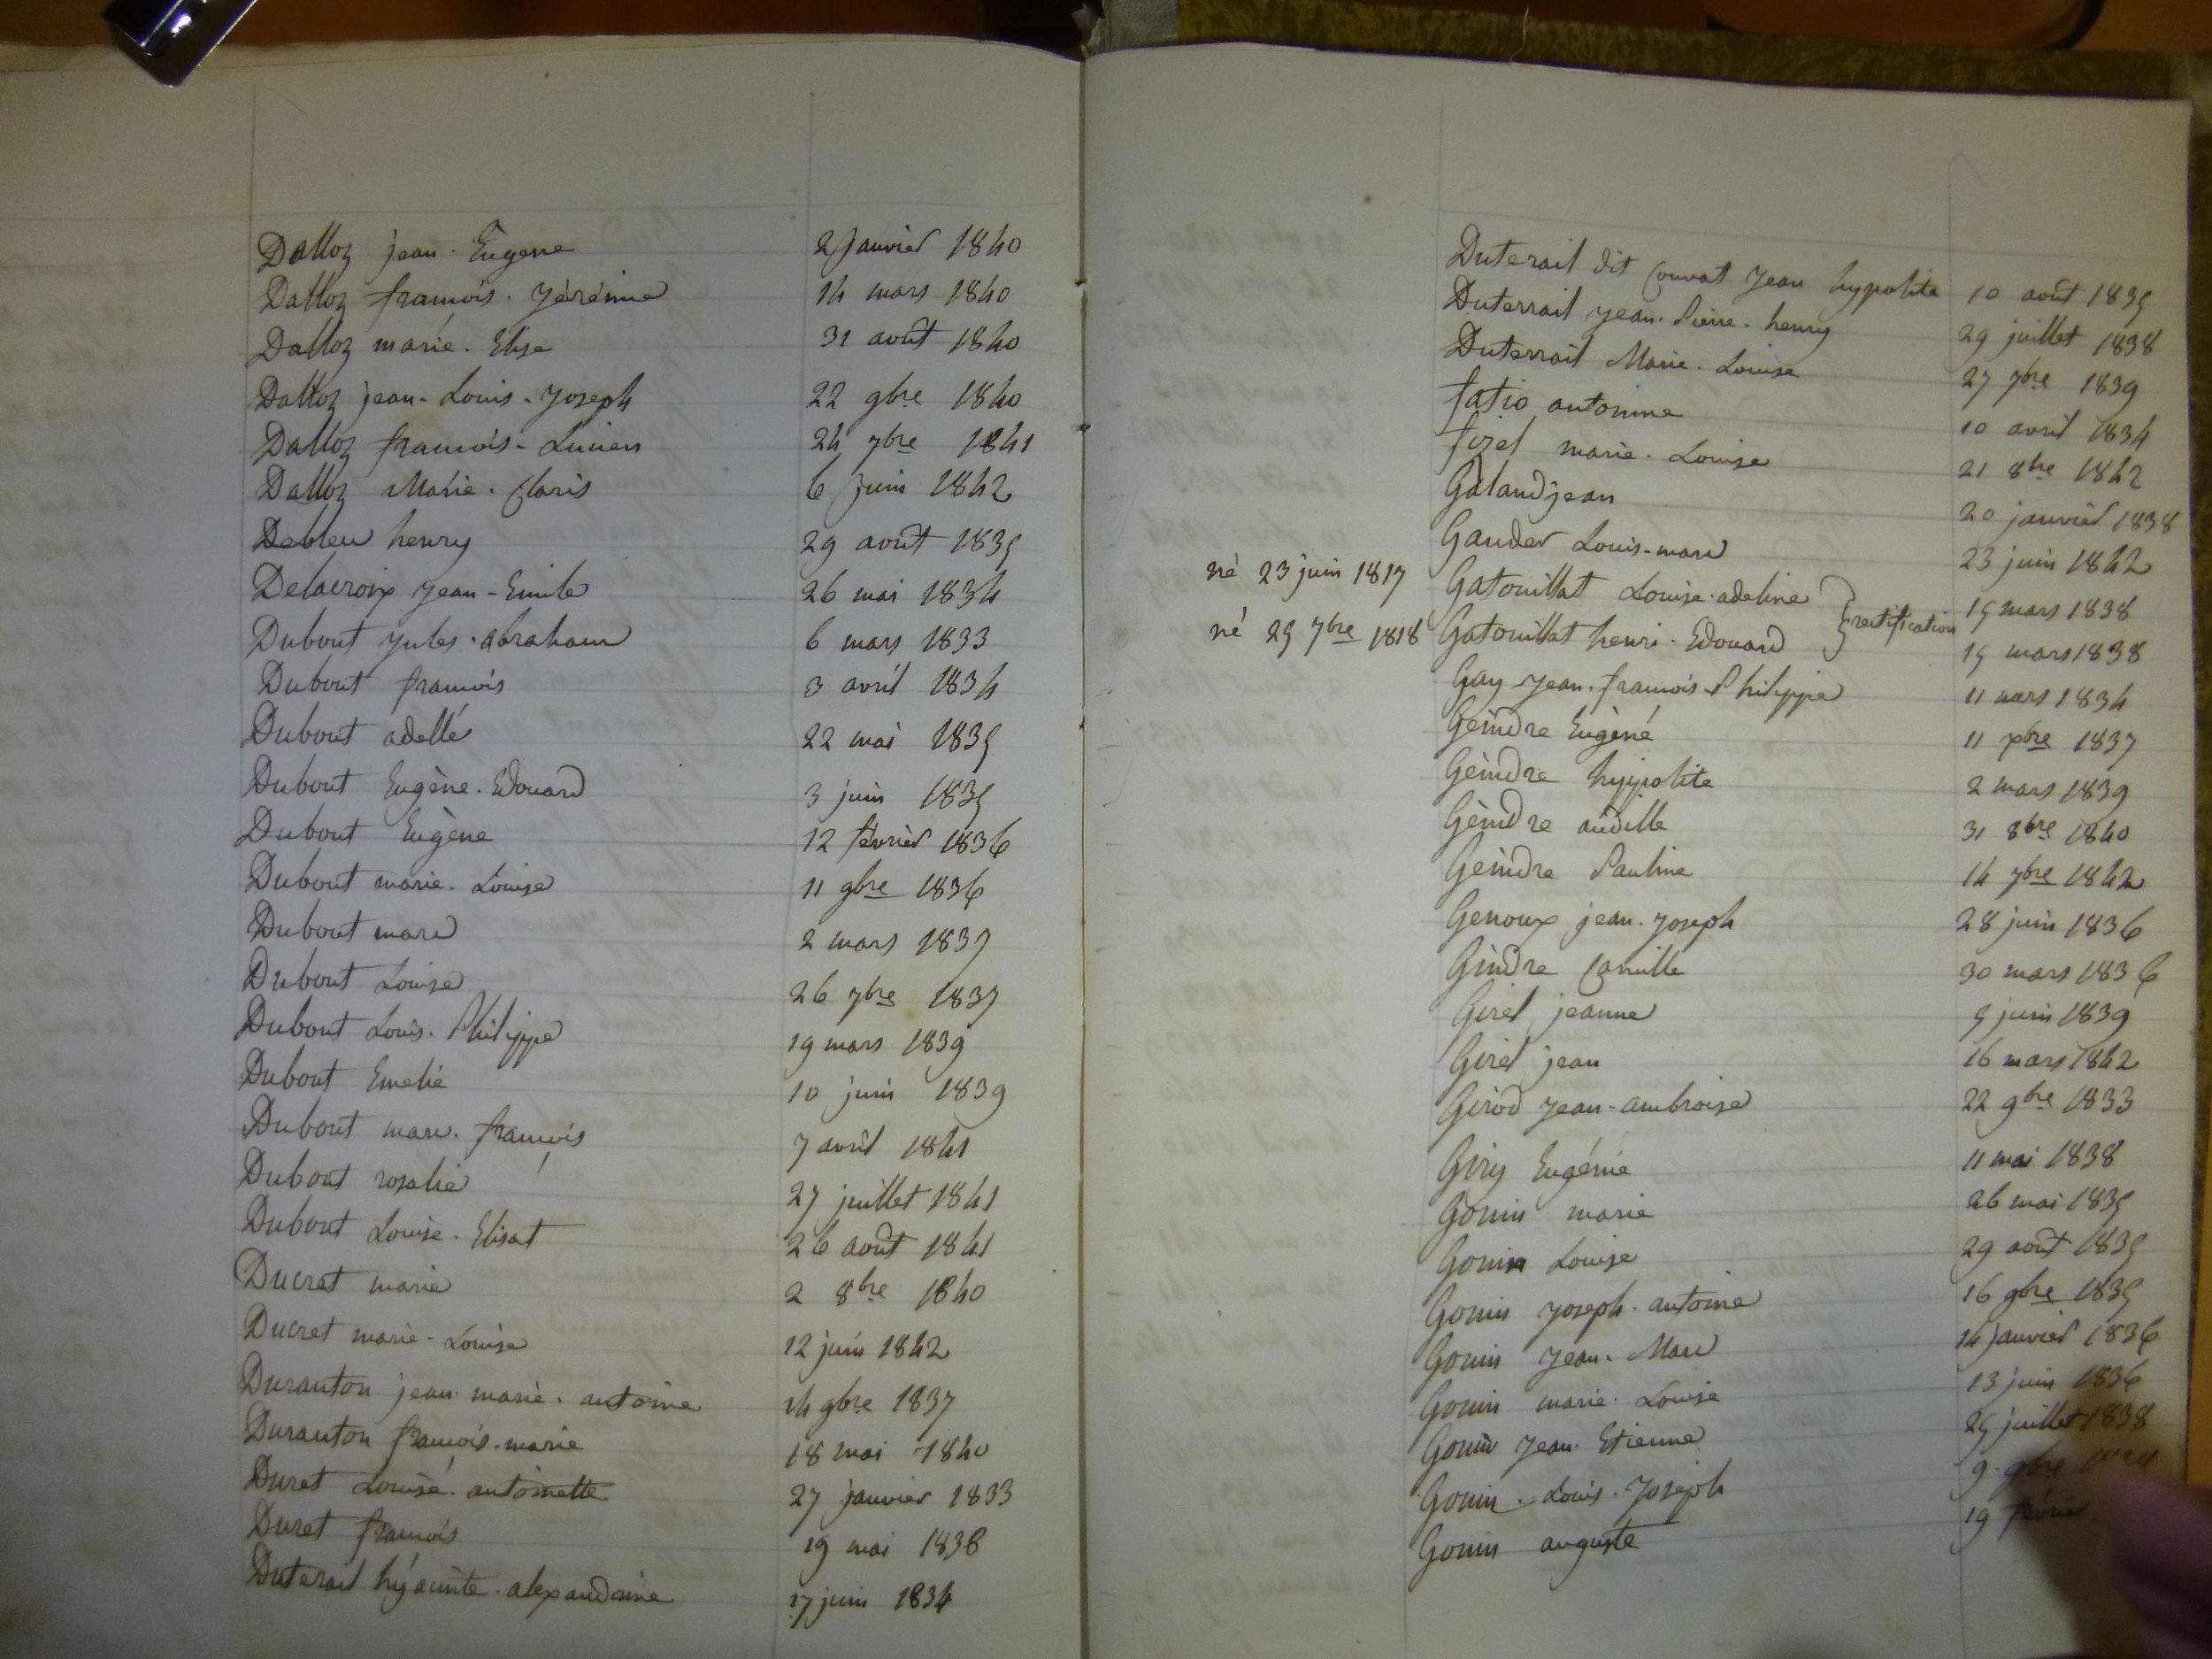 Dalloz jean. Eugene 2 Janvier 1840
Dalloz francois. Jérémie 14 mars 1840
Dalloz marie. Elise 31 août 1840
Dalloz jean. Louis. Joseph 22 9bre 1840
Dalloz francois. Lucien 24 7bre 1841
Dalloz Marie. Claris 6 juin 1842
Debleu henry 29 août 1835
Delacroix Jean-Emile 26 mai 1834
Dubout Jules. abraham 6 mars 1833
Dubout francois 3 avril 1834
Dubout adelle 22 mai 1835
Dubout Eugène. Edouard 3 juin 1835
Dubout Eugène 12 février 1836
Dubout marie. Louise 11 9bre 1836
Dubout marc 2 mars 1837
Dubout Louise 26 7bre 1837
Dubout Louis. Philippe 19 mars 1839
Dubout Emelie 10 juin 1839
Dubout marc. francois 7 avril 1841
Dubout rosalie 27 juillet 1841
Dubout Louise. Elisat 26 août 1841
Ducret marie 2 8bre 1840
Ducret marie-Louise 12 juin 1842
Duranton jean. marie. antoine 14 9bre 1837
Duranton francois. marie 18 mai 1840
Duret Louise. antoinette 27 janvier 1833
Duret francois 19 mai 1838
Duterail hyacinte. alexandrine 17 juin 1834
Duterail dit Couvat Jean hypolite 10 août 1835
Duterrail Jean. Pierre. henry 29 juillet 1838
Duterrail Marie. Louise 27 7bre 1839
fatio antoinne 10 avril 1834
fizel marie. Louise 21 8bre 1842
Galand jean 20 janvier 1838
Gauder Louis-marc 23 juin 1842
né 23 juin 1817 Gatouillat Louise. adeline } rectification 15 mars 1838
né 25 7bre 1818 Gatouillat henri. Edouard 15 mars 1838
Gay Jean. francois. Philippe 11 mars 1834
Geindre Eugène 11 xbre 1837
Geindre hyppolite 2 mars 1839
Geindre audille 31 8bre 1840
Geindre Pauline 14 7bre 1842
Genoux jean. Joseph 28 juin 1836
Gindre Camille 30 mars 1836
Girel jeanne 5 juin 1839
Girel jean 16 mars 1842
Girod Jean-ambroise 22 9bre 1833
Giry Eugénie 11 mai 1838
Gonin marie 26 mai 1835
Gonin Louise 29 août 1835
Gonin Joseph. antoine 16 9bre 1835
Gonin Jean. Marc 14 janvier 1836
Gonin marie. Louise 13 juin 1836
Gonin Jean. Etienne 25 juillet 1838
Gonin. Louis. Joseph 9. 9bre
Gonin auguste 19 février